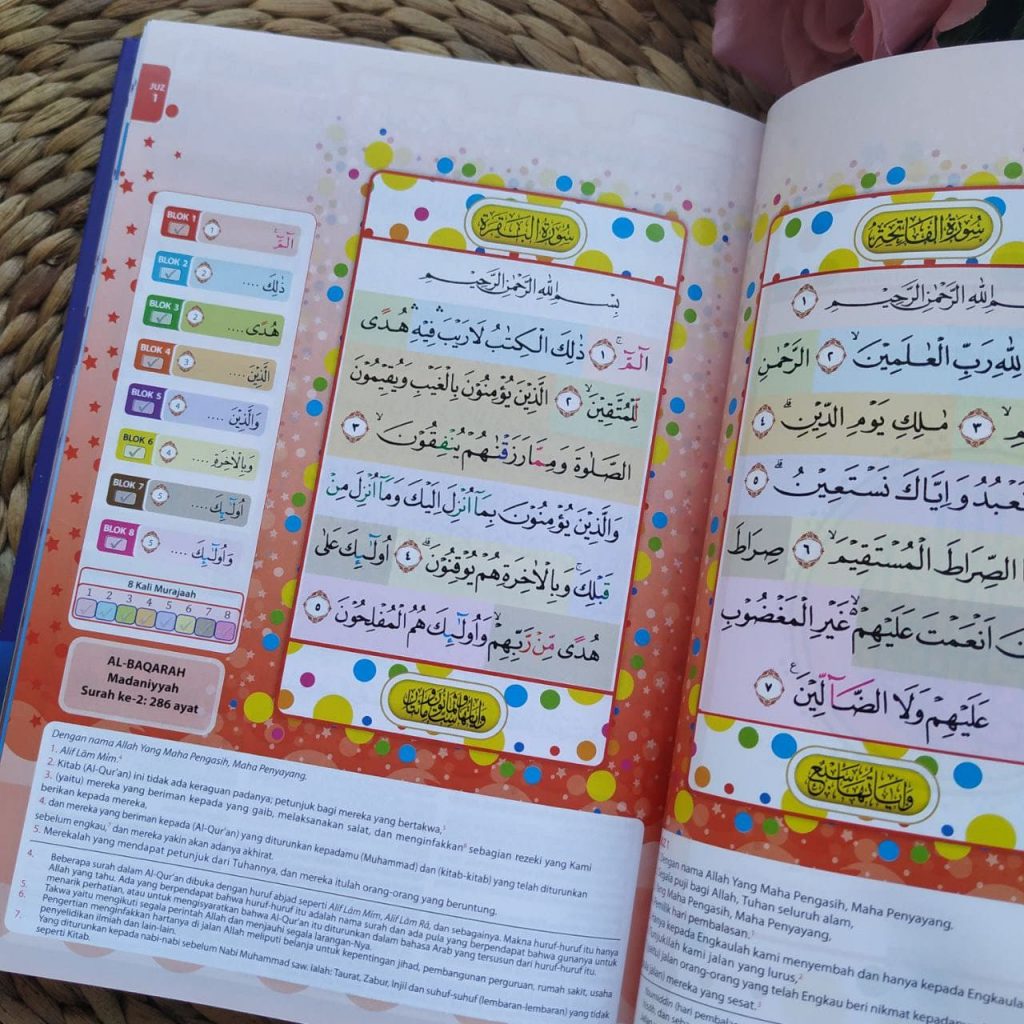 JUZ
1
BLOK 1
١
الٓمّٓ
BLOK 2
٢
ذٰلِكَ ....
BLOK 3
٢
هُدًى ....
BLOK 4
٣
الَّذِيْنَ ....
BLOK 5
٤
وَالَّذِيْنَ ....
BLOK 6
٤
وَبِالْاٰخِرَةِ ....
BLOK 7
٥
اُولٰۤىِٕكَ ....
BLOK 8
٥
وَاُولٰۤىِٕكَ ....
8 Kali Murajaah
1 2 3 4 5 6 7 8
AL-BAQARAH
Madaniyyah
Surah ke-2: 286 ayat
سُورَةُ الْبَقَرَةِ
بِسْمِ اللّٰهِ الرَّحْمٰنِ الرَّحِيْمِ
الٓمّٓ ۚ ١ ذٰلِكَ الْكِتٰبُ لَا رَيْبَ ۛ فِيْهِ ۛ هُدًى
لِّلْمُتَّقِيْنَ ۙ ٢ الَّذِيْنَ يُؤْمِنُوْنَ بِالْغَيْبِ وَيُقِيْمُوْنَ
الصَّلٰوةَ وَمِمَّا رَزَقْنٰهُمْ يُنْفِقُوْنَ ۙ ٣
وَالَّذِيْنَ يُؤْمِنُوْنَ بِمَآ اُنْزِلَ اِلَيْكَ وَمَآ اُنْزِلَ مِنْ
قَبْلِكَ ۚ وَبِالْاٰخِرَةِ هُمْ يُوْقِنُوْنَ ۗ ٤ اُولٰۤىِٕكَ عَلٰى
هُدًى مِّنْ رَّبِّهِمْ ۙ وَاُولٰۤىِٕكَ هُمُ الْمُفْلِحُوْنَ ٥
Dengan nama Allah Yang Maha Pengasih, Maha Penyayang.
1. Alif Lām Mīm.⁴
2. Kitab (Al-Qur'an) ini tidak ada keraguan padanya; petunjuk bagi mereka yang bertakwa,⁵
3. (yaitu) mereka yang beriman kepada yang gaib, melaksanakan salat, dan menginfakkan⁶ sebagian rezeki yang Kami
berikan kepada mereka,
4. dan mereka yang beriman kepada (Al-Qur'an) yang diturunkan kepadamu (Muhammad) dan (kitab-kitab) yang telah diturunkan
sebelum engkau,⁷ dan mereka yakin akan adanya akhirat.
5. Merekalah yang mendapat petunjuk dari Tuhannya, dan mereka itulah orang-orang yang beruntung.
4. Beberapa surah dalam Al-Qur'an dibuka dengan huruf abjad seperti Alif Lām Mīm, Alif Lām Rā, dan sebagainya. Makna huruf-huruf itu hanya
Allah yang tahu. Ada yang berpendapat bahwa huruf-huruf itu adalah nama surah dan ada pula yang berpendapat bahwa gunanya untuk
menarik perhatian, atau untuk mengisyaratkan bahwa Al-Qur'an itu diturunkan dalam bahasa Arab yang tersusun dari huruf-huruf itu.
5. Takwa yaitu mengikuti segala perintah Allah dan menjauhi segala larangan-Nya.
6. Pengertian menginfakkan hartanya di jalan Allah meliputi belanja untuk kepentingan jihad, pembangunan perguruan, rumah sakit, usaha
penyelidikan ilmiah dan lain-lain.
7. Yang diturunkan kepada nabi-nabi sebelum Nabi Muhammad saw. ialah: Taurat, Zabur, Injil dan suhuf-suhuf (lembaran-lembaran) yang tidak
seperti Kitab.
سُورَةُ الْفَاتِحَةِ
اللّٰهِ الرَّحْمٰنِ الرَّحِيْمِ ١
لِلّٰهِ رَبِّ الْعٰلَمِيْنَ ۙ ٢ الرَّحْمٰنِ
٣ مٰلِكِ يَوْمِ الدِّيْنِ ۗ ٤
نَعْبُدُ وَاِيَّاكَ نَسْتَعِيْنُ ۗ ٥
الصِّرَاطَ الْمُسْتَقِيْمَ ۙ ٦ صِرَاطَ
اَنْعَمْتَ عَلَيْهِمْ ەۙ غَيْرِ الْمَغْضُوْبِ
عَلَيْهِمْ وَلَا الضَّاۤلِّيْنَ ࣖ ٧
وَاٰيَاتُهَا سَبْعٌ
Dengan nama Allah Yang Maha Pengasih, Maha Penyayang.
Segala puji bagi Allah, Tuhan seluruh alam,
Yang Maha Pengasih, Maha Penyayang,
Pemilik hari pembalasan.¹
hanya kepada Engkaulah kami menyembah dan hanya kepada Engkaulah
Tunjukilah kami jalan yang lurus,²
(yaitu) jalan orang-orang yang telah Engkau beri nikmat kepada
jalan) mereka yang sesat.³
(hari pembalasan)